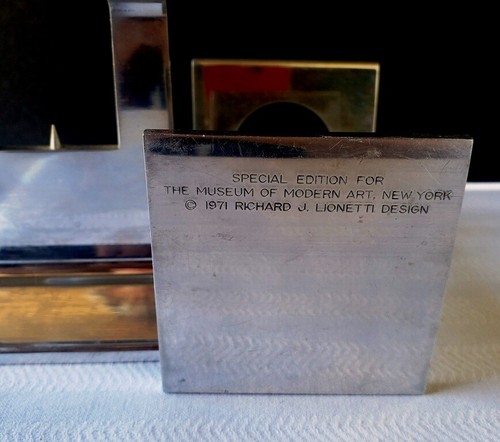 SPECIAL EDITION FOR
THE MUSEUM OF MODERN ART, NEW YORK
© 1971 RICHARD J. LIONETTI DESIGN